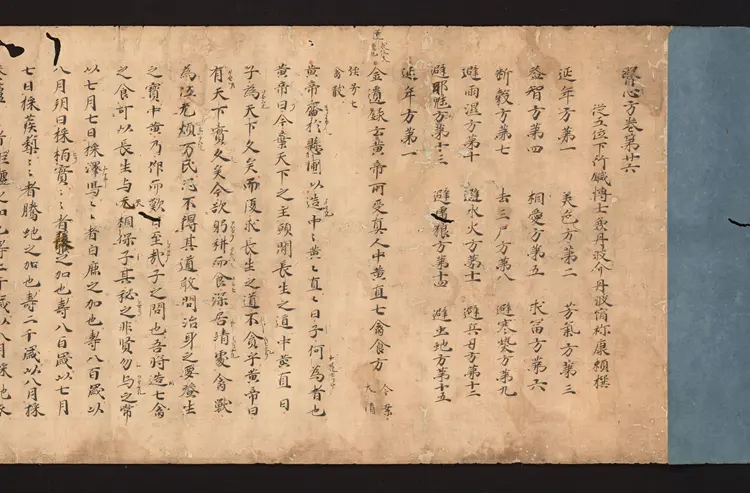 醫心方卷第廿六
從五位下行鍼博士兼丹波介丹波宿祢康頼撰
延年方第一 美色方第二 芳氣方第三
益智方第四 相愛方第五 求冨方第六
断穀方第七 去三尸方第八 避寒熱方第九
避雨濕方第十 避水火方第十一 避兵刃方第十二
避邪魅方第十三 避虎狼方第十四 避虫地方第十五
延年方第一
金遺録云黄帝所受真人中黄直七禽食方
黄帝齋於懸圃以造中〻黄〻直〻曰子何為者也
黄帝曰今竜天下之主願聞長生之道中黄直曰
子為天下久矣而復求長生之道不貪乎黄帝曰
有天下實久矣今欲躬耕而食深居靖處禽獣
為伍无煩万民恐不得其道敢問治身之要養生
之寶中黄乃作而歎曰至哉子之問也吾時造七禽
之食可以長生与天相保子其秘之非賢勿与之常
以七月七日採澤寫〻〻者白鹿之加也壽八百歳以
八月朔日採栢實〻〻者之加也壽八百歳以七月
七日採蒺蔾〻〻者騰地之加也壽二千歳以八月採